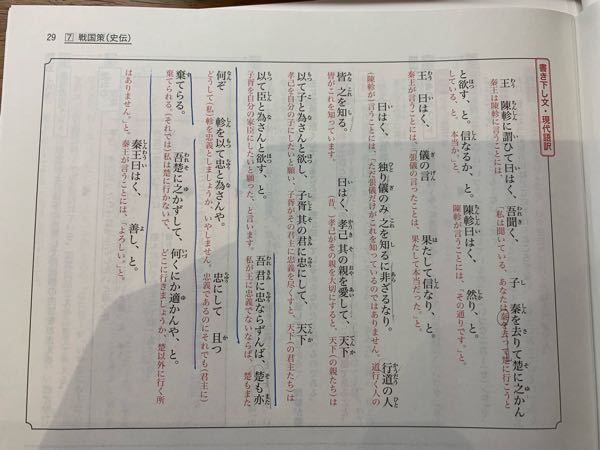 29 7 戦国策(史伝)
書き下し文・現代語訳
王 陳軫に謂ひて曰はく、吾聞く、 子 秦を去りて楚に之かん
秦王は陳軫に言うことには、「私は聞いている、あなたは(秦を去って)楚に行こうと
と欲す、と。信なるか、と。陳軫曰はく、 然り、と。
している、と。本当か。」と。陳軫が言うことには、「その通りです。」と。
王 曰はく、 儀の言 果たして信なり、と。
秦王が言うことには、「張儀の言ったことは、果たして本当だった。」と。
曰はく、 独り儀のみ 之を知るに非ざるなり。 行道の人
(陳軫が)言うことには、「ただ張儀だけがこれを知っているのではありません。道行く人の
皆 之を知る。 曰はく、孝己 其の親を愛して、天下
皆がこれを知っています。 (昔、)孝己がその親を大切にすると、天下(の親たち)は
以て子と為さんと欲し、子胥 其の君に忠にして、 天下
孝己を自分の子にしたいと願い、子胥がその君主に忠義を尽くすと、天下(の君主たち)は
以て臣と為さんと欲す、と。 吾 君に忠ならずんば、楚も亦
子胥を自分の家臣にしたいと願った、と言います。私が王に忠義でないならば、楚もまた
何ぞ 軫を以て忠と為さんや。 忠にして 且つ
どうして(私)軫を忠義としましょうか、いやしません。忠義であるのにそれでも(君主に)
棄てらる。 吾楚に之かずして、何くにか適かんや、と。
棄てられる。(それでは)私は楚に行かないで、どこに行きましょうか、楚以外に行く所
秦王曰はく、 善し、と。
はありません。」と。秦王が言うことには、「よろしい。」と。